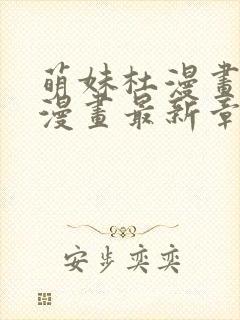 萌妹杜漫畫
漫畫最新章
安步奕奕